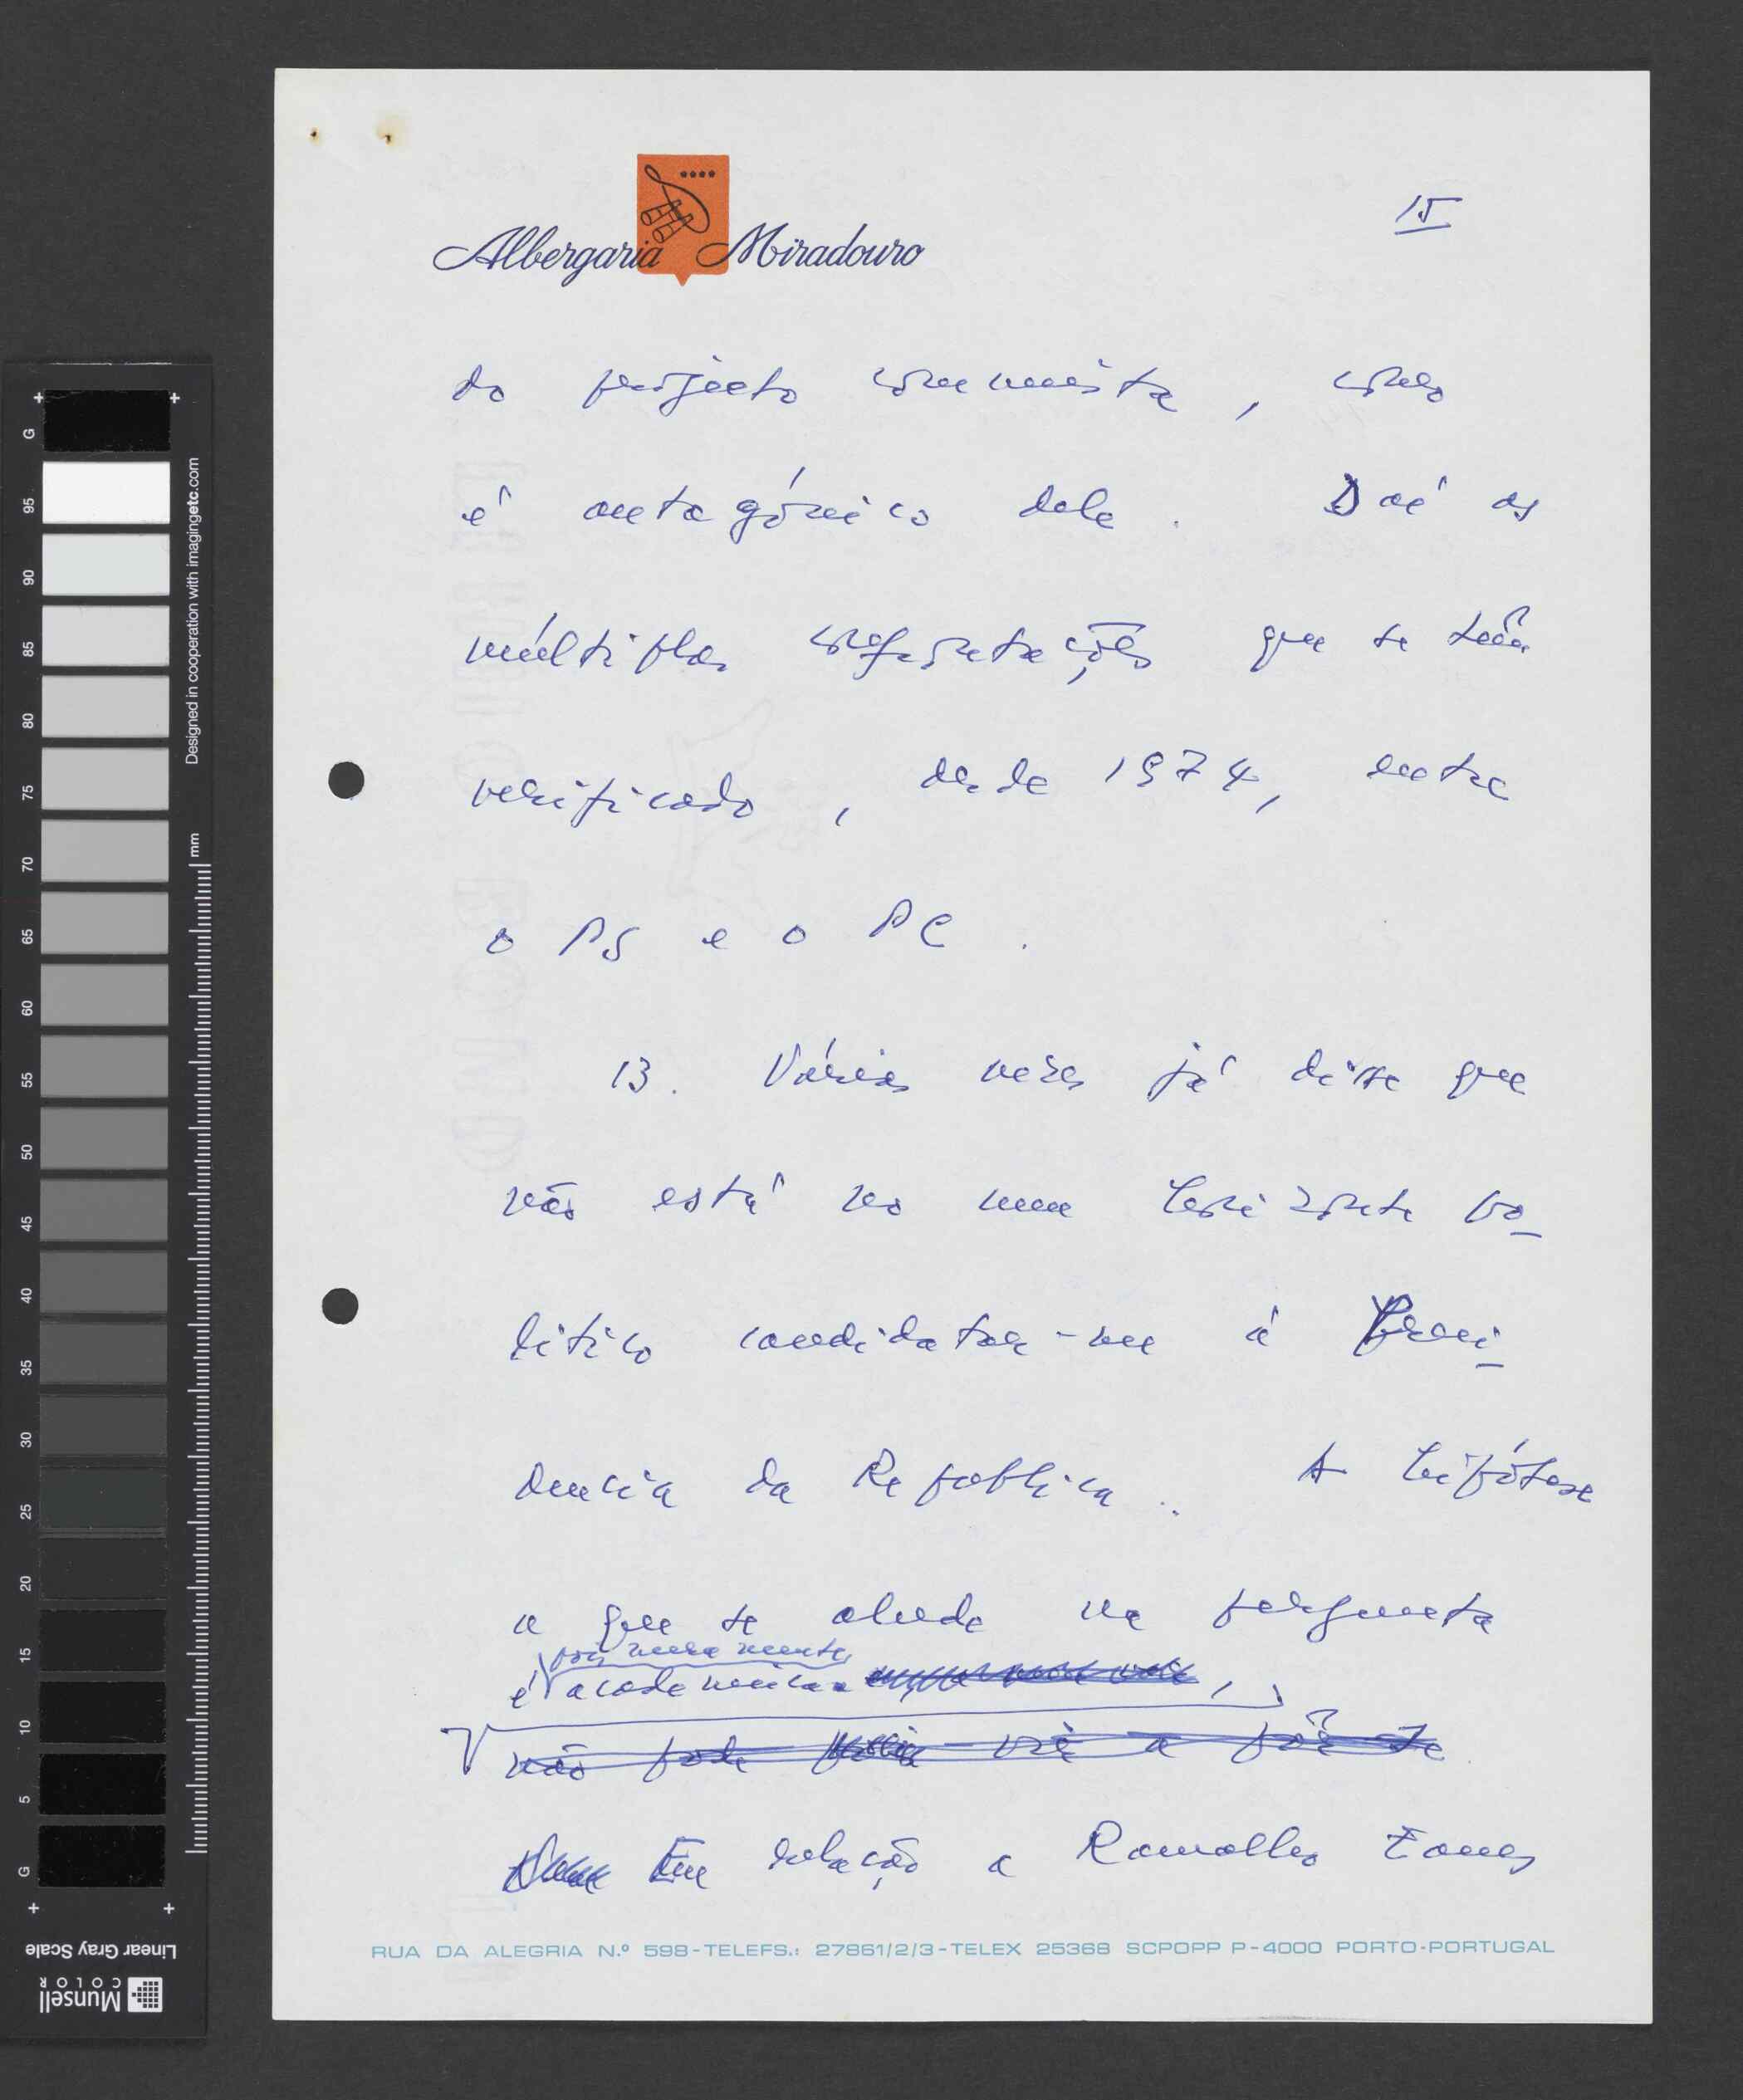 Albergaria Miradouro
15
do projecto comunista, como
é antagónico dele. Daí as
múltiplas confrontações que se têm
verificado, desde 1974, entre
o PS e o PC.
13. Várias vezes já disse que
não está no meu horizonte po-
lítico candidatar-me à Presi-
dencia da Republica. A hipótese
a que se alude na pergunta
pois meramente
é academica ,
não pode vir a pôr-se
Em relação a Ramalho Eanes
RUA DA ALEGRIA N.º 598-TELEFS.: 27861/2/3-TELEX 25368 SCPOPP P-4000 PORTO-PORTUGAL
G
95
90
85
80
75
70
65
60
55
50
45
40
35
30
25
20
15
10
5
G
mm
Designed in cooperation with imagingetc.com
Linear Gray Scale
Munsell
COLOR